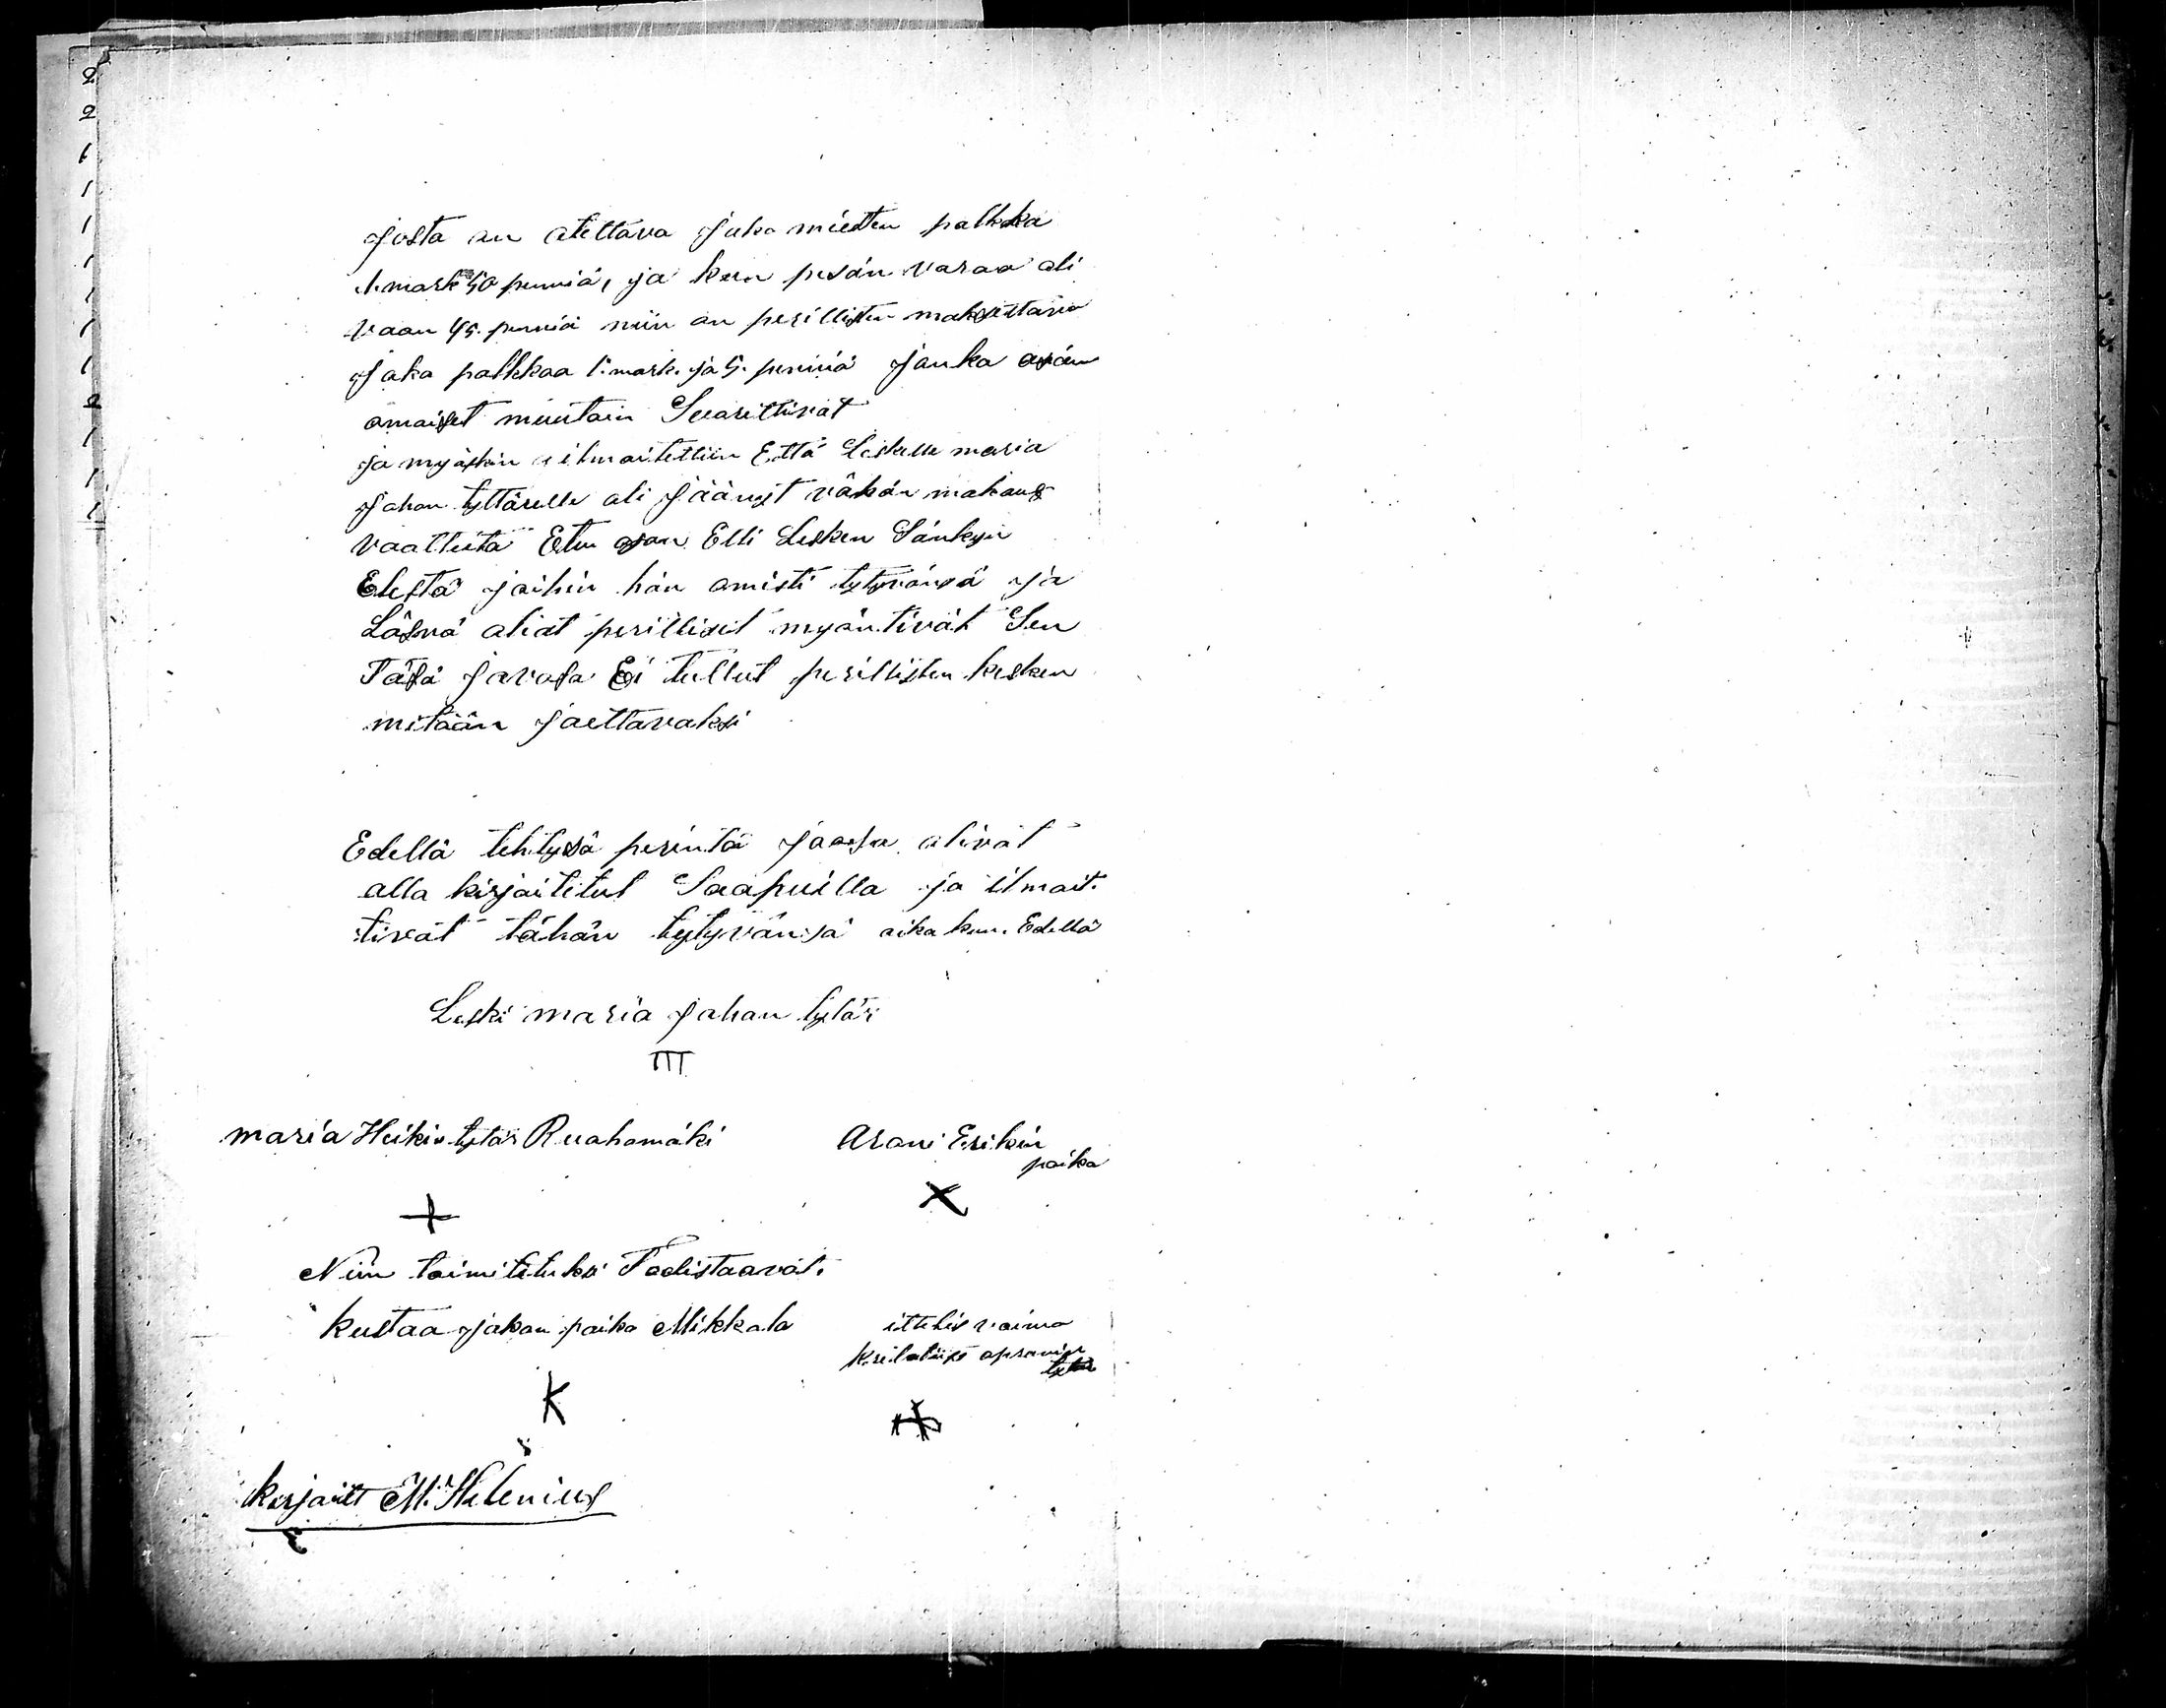 2
2
1
1
1
1
1
1
1
2
1
1
1
josta on otettava jako miesten palkka
1. mark 50 penniä, ja kun pesän varaa oli
vaan 45. penniä niin on perillisten maksettava
jako palkkaa 1. mark. ja 5. penniä jonka asian
omaiset muutoin Suorittivat
ja myöskin ilmoitettiin Että Leskelle maria
Johan tyttärelle oli jäänyt vähän makaus
vaatteita Etu osan Elli Lesken Sänkyn
Elestä joihin hän omisti tytyvänsä ja
Läsnä oliat perilliset myöntivät Sen
Täsä jaossa Ei tullut perillisten kesken
mitään jaettavaksi
Edellä tehtysä perintö jaosa olivat
alla kirjoitetut Saapuilla ja ilmoit.
tivat tähän tytyvänsä aika kuu. Edellä
Leski maria Johan tytär
TTT
maria Heikin tytär Ruohomäki
Aroni Erikin
poika
Niin toimitetuksi Todistaavat.
kustaa Johan poika Mikkola
ittelis vaimo
tytär
K
kirjoitt M. Helenius